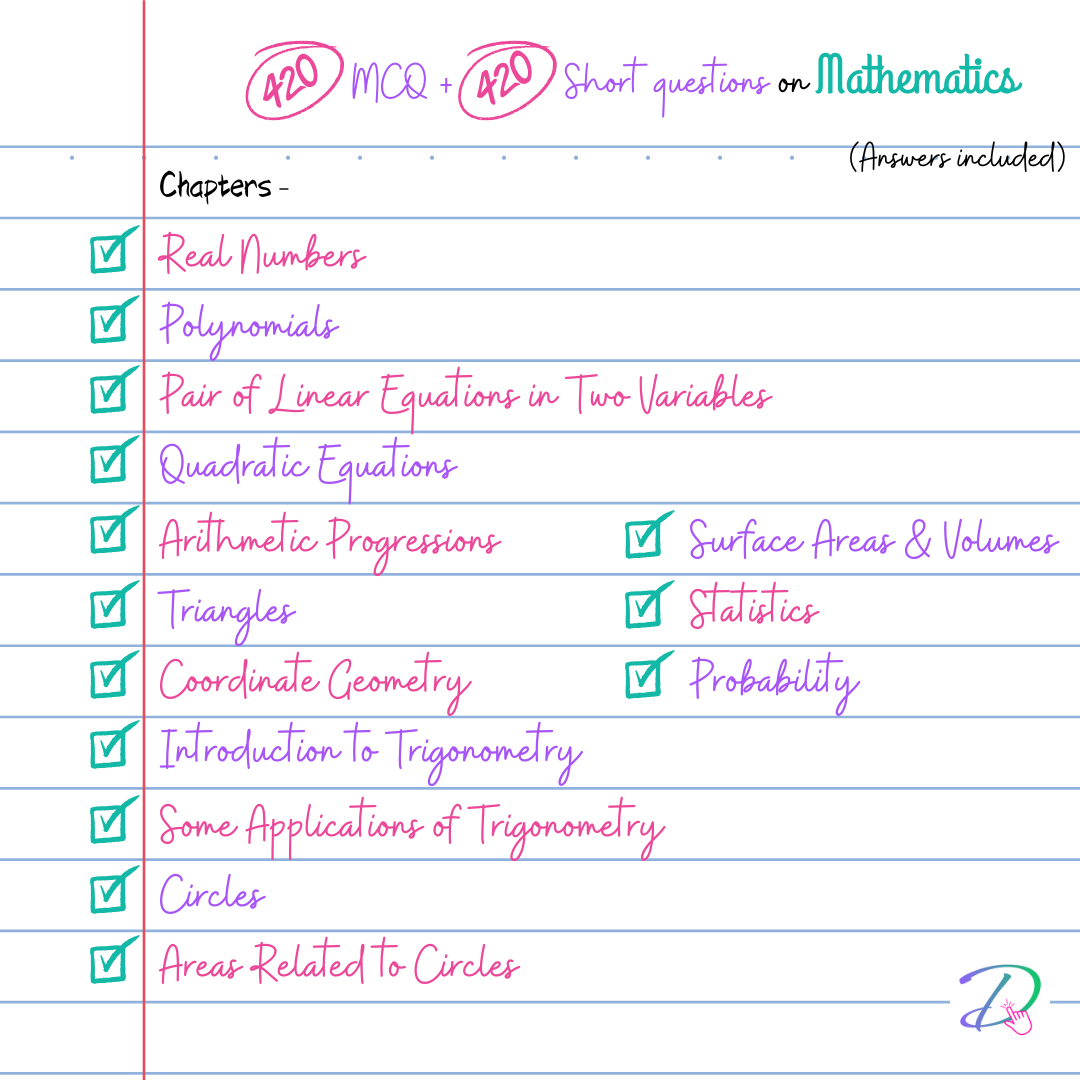 420 MCQ + 420 Short questions on Mathematics
(Answers included)
Chapters -
Real Numbers
Polynomials
Pair of Linear Equations in Two Variables
Quadratic Equations
Arithmetic Progressions
Triangles
Coordinate Geometry
Introduction to Trigonometry
Some Applications of Trigonometry
Circles
Areas Related to Circles
Surface Areas & Volumes
Statistics
Probability
D